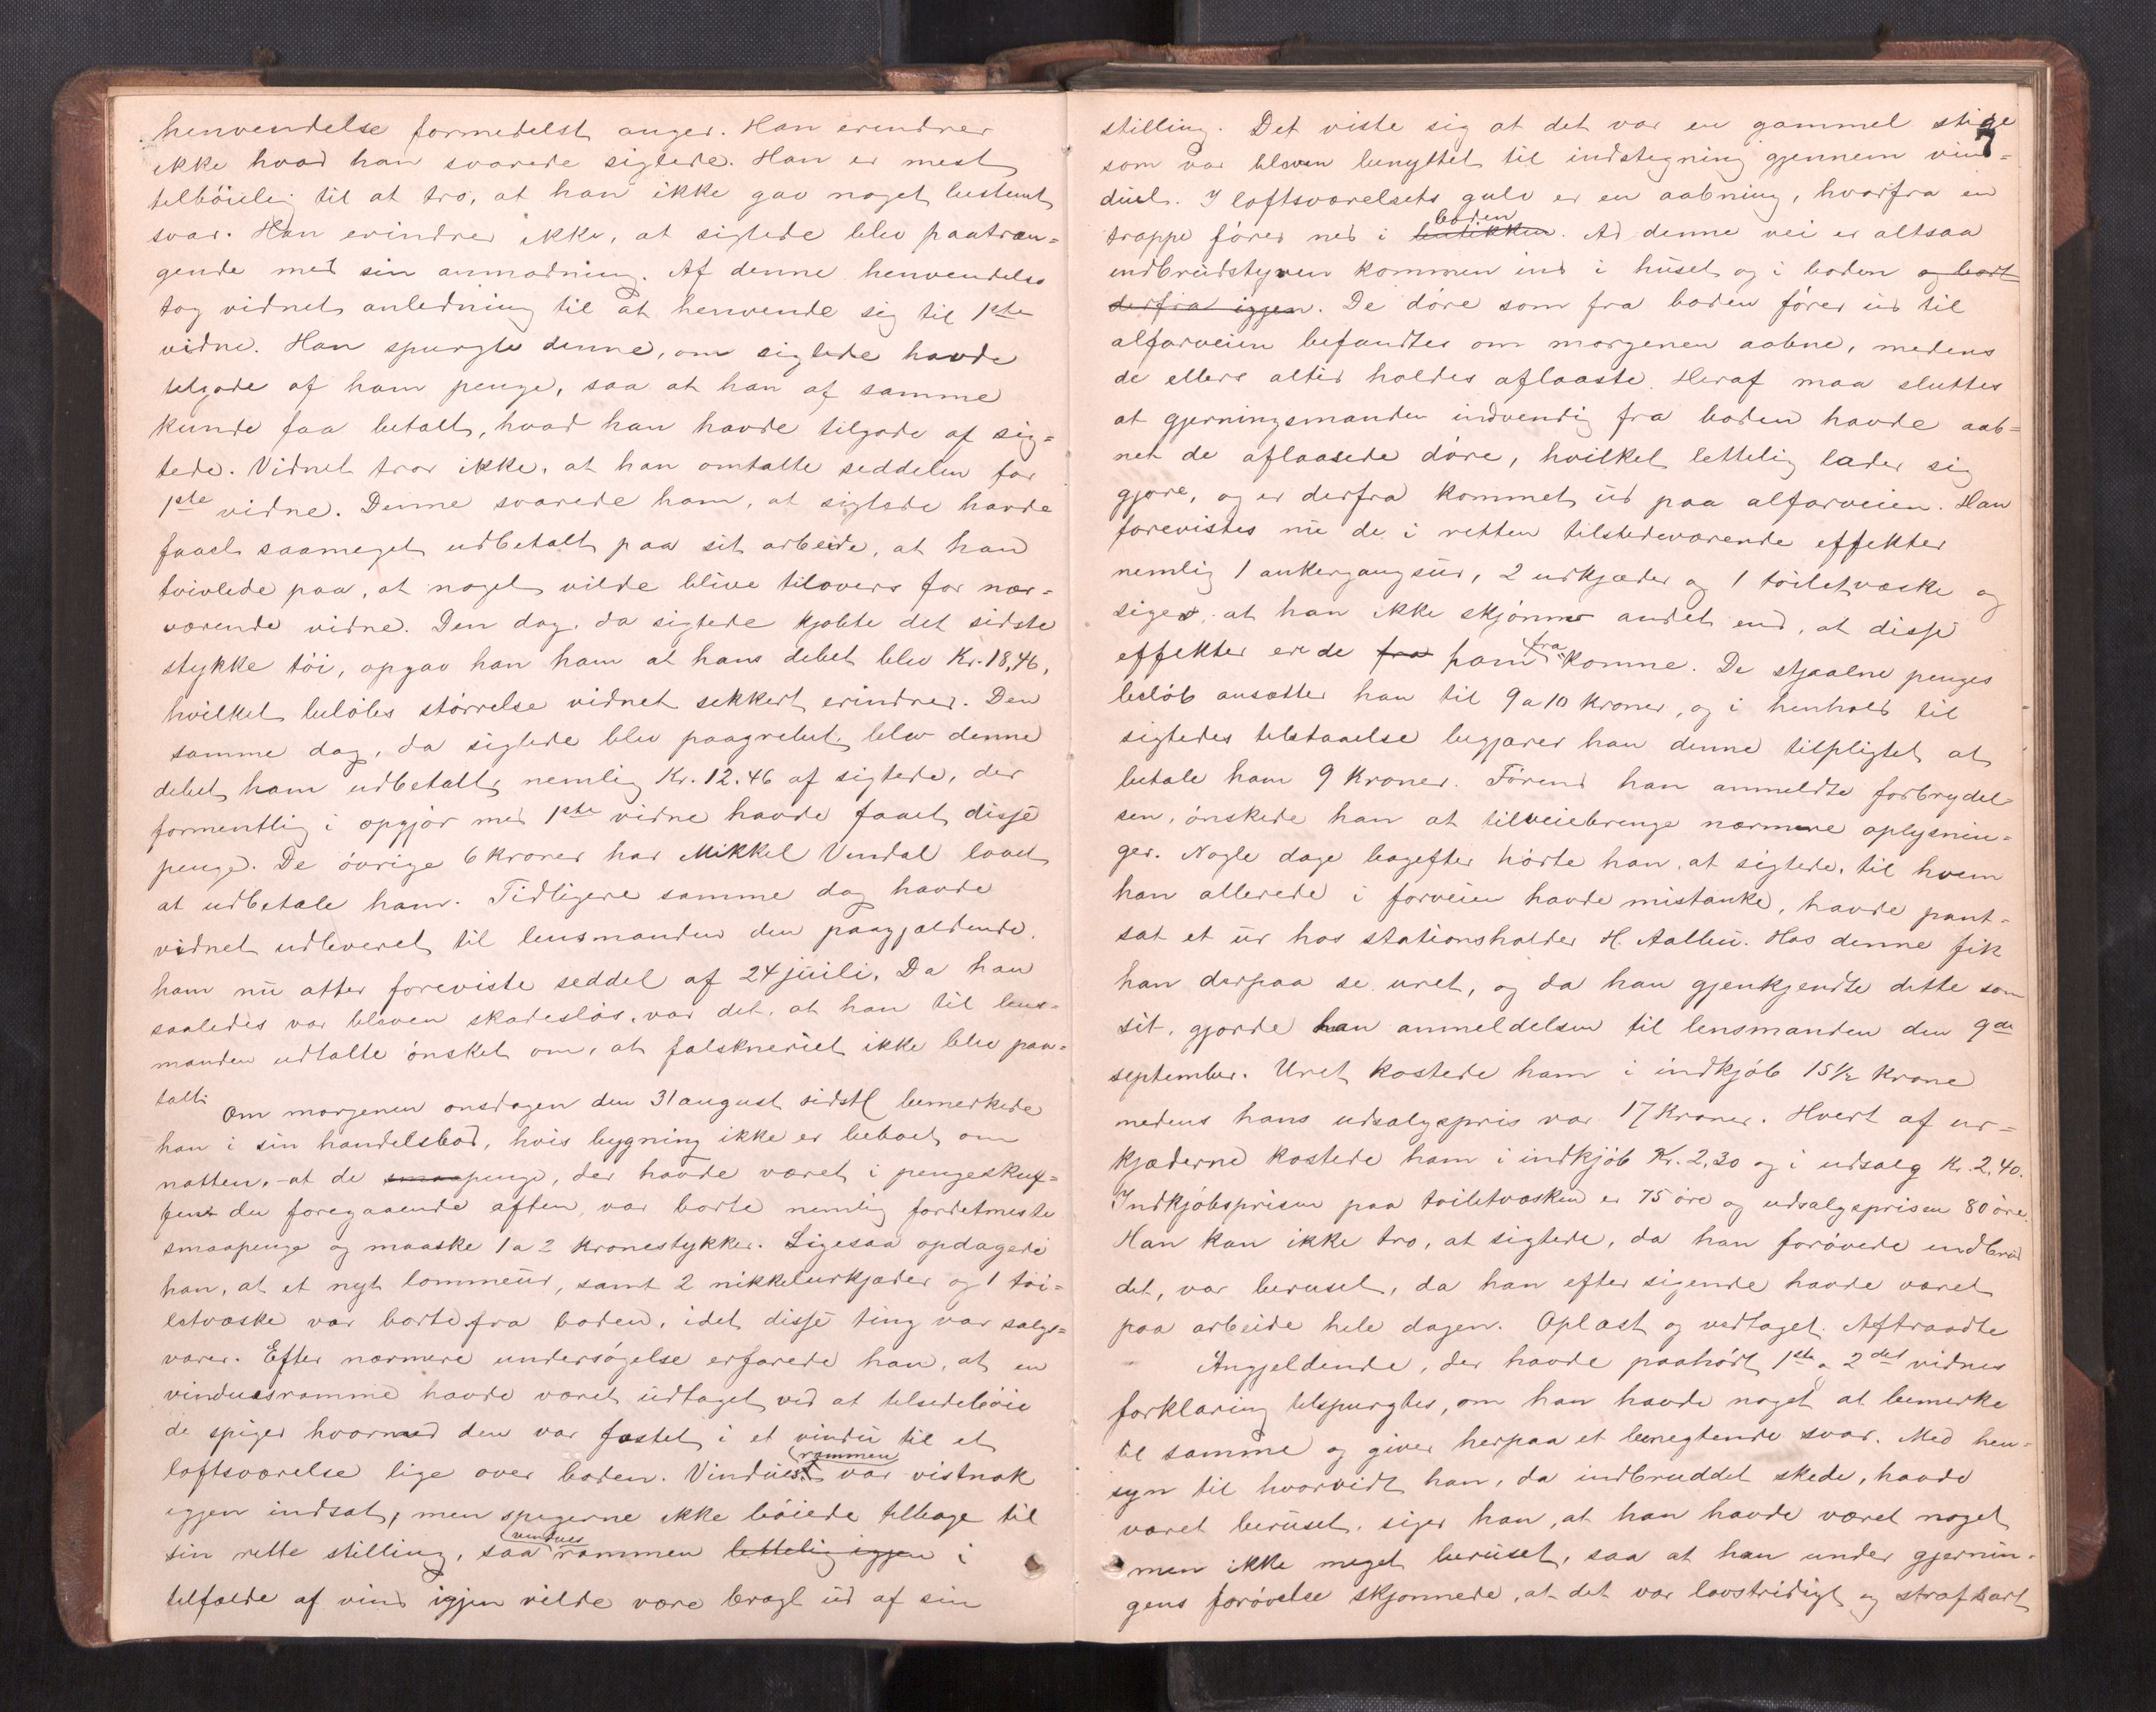 henvendelse formedelst anger. Han erindrer
ikke hvad han svarede sigtede. Han er mest
tilböielig til at tro, at han ikke gav noget bestemt
svar. Han erindrer ikke, at sigtede blev paatræn=
gende med sin anmodning. Af denne henvendelse
tog vidnet anledning til at henvende sig til 1ste
vidne. Han spurgte denne, om sigtede havde
tilgode af ham penge, saa at han af samme
kunde faa betalt, hvad han havde tilgode af sig=
tede. Vidnet tror ikke, at han omtalte seddelen for
1ste vidne. Denne svarede ham, at sigtede havde
faaet saameget udbetalt paa sit arbeide, at han
tvivlede paa, at noget vilde blive tilovers for nær=
værende vidne. Den dag, da sigtede kjøbte det sidste
stykke töi, opgav han ham at hans debet blev Kr. 18,46,
hvilket belöbs störrelse vidnet sikkert erindrer. Den
samme dag, da sigtede blev paagrebet, blev denne
debet ham udbetalt, nemlig Kr. 12.46 af sigtede, der
formentlig i opgjör med 1ste vidne havde faaet disse
penge. De övrige 6 kroner har Mikkel Vindal lovet
at udbetale ham. Tidligere samme dag havde
vidnet udleveret til lensmanden den paagjældende,
ham nu atter foreviste seddel af 24 juli. Da han
saaledes var bleven skadeslös, var det, at han til lens=
manden udtalte önsket om, at falskneriet ikke blev paa=
talt.
Om morgenen onsdagen den 31 august sidstl bemerkede
han i sin handelsbod, hvis bygning ikke er beboet om
natten, at de smaapenge, der havde været i pengeskuf=
fen den foregaaende aften, var borte nemlig fordetmeste
smaapenge og maaske 1 a 2 kronestykker. Ligesaa opdagede
han, at et nyt lommeur, samt 2 nikkelurkjæder og 1 toi=
letvæske var borte fra boden, idet disse ting var salgs=
varer. Efter nærmere undersögelse erfarede han, at en
vinduesramme havde været udtaget ved at tilsideböie
de spiger hvormed den var fæstet i et vindu til et
loftsværelse lige over boden. Vindues rammen var vistnok
igjen indsat, men spigerne ikke böiede tilbage til
sin rette stilling, saa vindues rammen lettelig igjen i
tilfælde af vind igjen vilde være bragt ud af sin
7
stilling. Det viste sig at det var en gammel stige
som var bleven benyttet til indstigning gjennem vin=
duet. I loftsværelsets gulv er en aabning, hvorfra en
trappe förer ned i butikken boden. Ad denne vei er altsaa
indbrudstyven kommen ind i huset og i boden og bort
derfra igjen. De döre som fra boden förer ud til
alfarveien befandtes om morgenen aabne, medens
de ellers altid holdes aflaaste. Heraf maa sluttes
at gjerningsmanden indvendig fra boden havde aab=
net de aflaasede döre, hvilket lettelig lader sig
gjøre, og er derfra kommet ud paa alfarveien. Han
forevistes nu de i retten tilstedeværende effekter
nemlig 1 ankergangsur, 2 urkjæder og 1 toiletvæske og
siger, at han ikke skjönner andet end, at disse
effekter ere de fra ham fra komne. De stjaalne penges
belöb ansætter han til 9 a 10 kroner, og i henhold til
sigtedes tilstaaelse begjærer han denne tilpligtet at
betale ham 9 kroner. Förend han anmeldte forbrydel
sen, önskede han at tilveiebringe nærmere oplysnin=
ger. Nogle dage bagefter hörte han, at sigtede, til hvem
han allerede i forveien havde mistanke, havde pant=
sat et ur hos stationsholder H. Aalbu. Hos denne fik
han derpaa se uret, og da han gjenkjendte dette som
sit, gjorde han anmeldelsen til lensmanden den 9de
september. Uret kostede ham i indkjöb 15½ krone
medens hans udsalgspris var 17 kroner. Hvert af ur=
kjæderne kostede ham i indkjöb Kr. 2,30 og i udsalg Kr. 2,40.
Indkjöbsprisen paa toiletvæsken er 75 öre og udsalgsprisen 80 öre.
Han kan ikke tro, at sigtede, da han forövede indbrud
det, var beruset, da han efter sigende havde været
paa arbeide hele dagen. Oplæst og vedtaget. Aftraadte
Angjeldende, der havde paahört 1ste og 2det vidnes
forklaring tilspurgtes, om han havde noget at bemerke
til samme og giver herpaa et benegtende svar. Med hen=
syn til hvorvidt han, da indbruddet skede, havde
været beruset, siger han, at han havde været noget
men ikke meget beruset, saa at han under gjernin=
gens forövelse skjønnede, at det var lovstridigt og strafbart